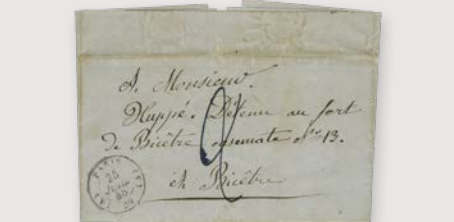 A Monsieur.
Huppé. Détenu au fort
de Bicêtre casemate No 13.
A Bicêtre
2
PARIS
25
JUIL